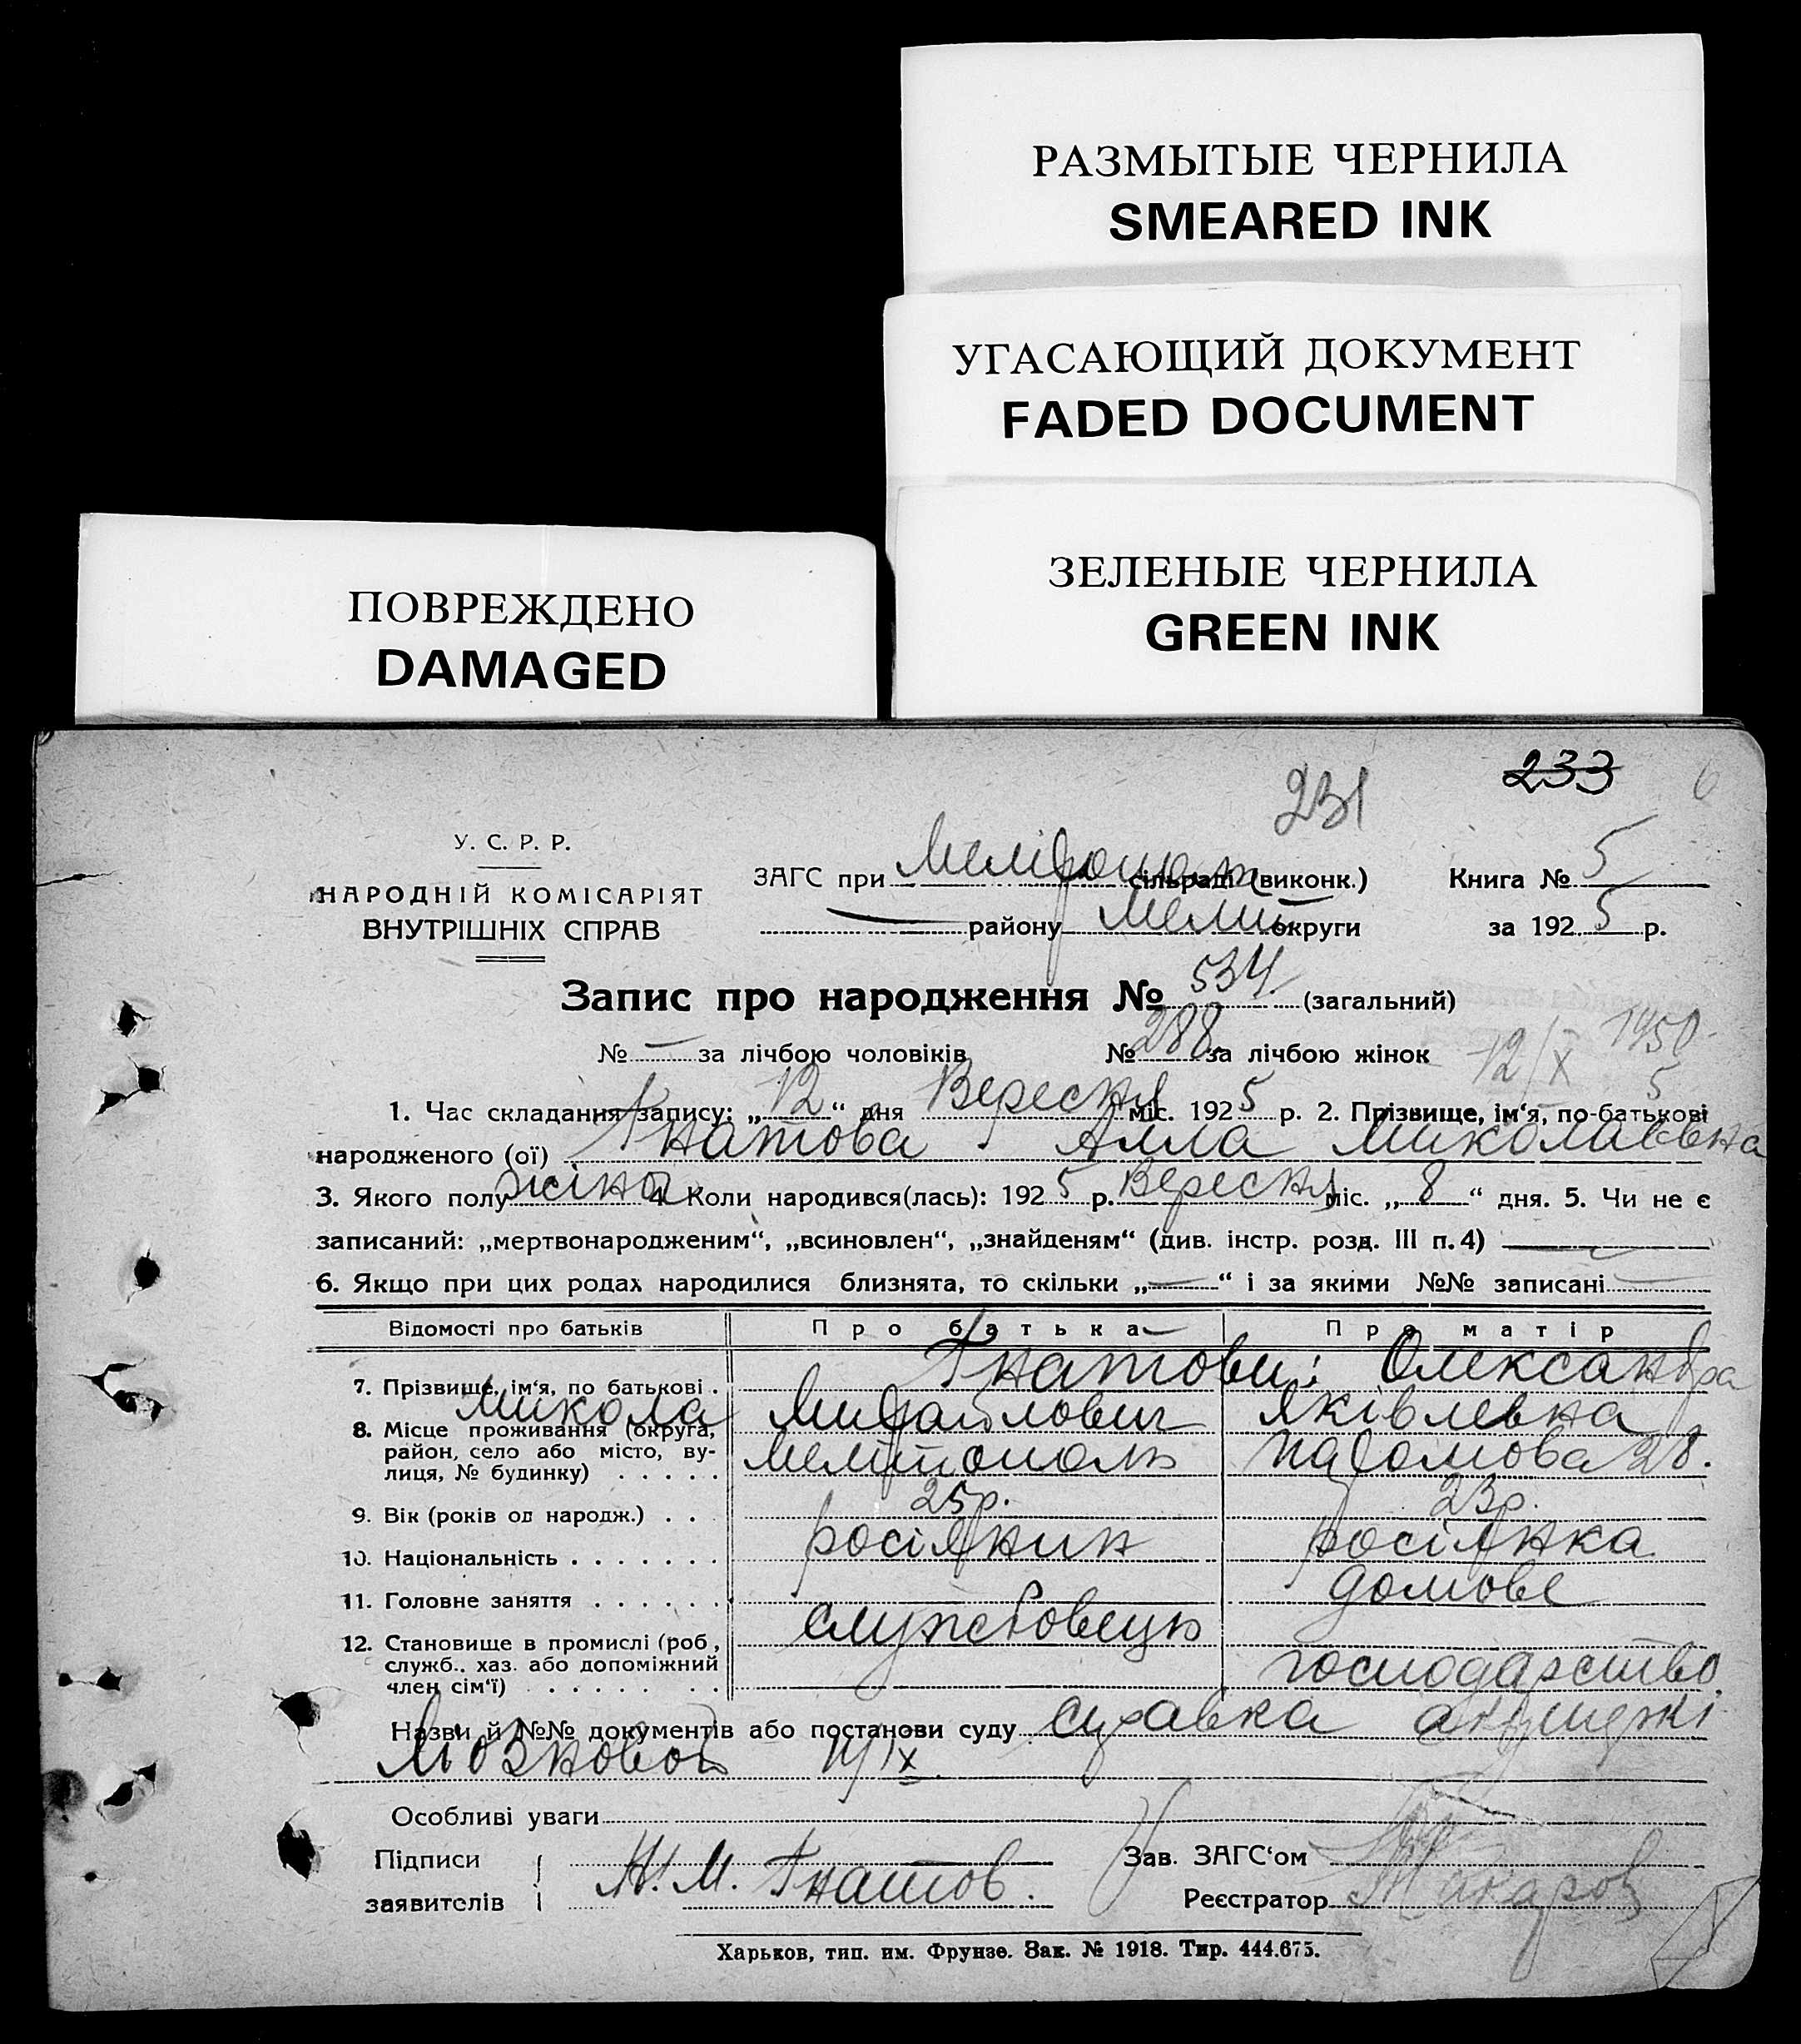 РАЗМЫТЫЕ ЧЕРНИЛА
SMEARED INK
УГАСАЮЩИЙ ДОКУМЕНТ
FADED DOCUMENT
ЗЕЛЕНЫЕ ЧЕРНИЛА
GREEN INK
ПОВРЕЖДЕНО
DAMAGED
233 6
231
У. С. Р. Р.
НАРОДНІЙ КОМІСАРІЯТ
ВНУТРІШНІХ СПРАВ
ЗАГС при сільраді (виконк.) Книга № 5
району Меліт округи за 1925 р.
Запис про народження № 534 (загальний)
№ — за лічбою чоловіків № 288 за лічбою жінок
12/X 1950
5
1. Час складання запису: „12“ дня Вересня міс. 1925 р. 2. Прізвище, ім‘я, по-батькові
народженого (ої) Гнатова Алла Миколаєвна
3. Якого полу жіноч 4 Коли народився(лась): 1925 р. Вересня міс. „8“ дня. 5. Чи не є
записаний: „мертвонародженим“, „всиновлен“, „знайденям“ (див. інстр. розд. III п. 4) —
6. Якщо при цих родах народилися близнята, то скільки „—“ і за якими №№ записані —
Відомості про батьків Про батька Про матір
7. Прізвище, ім‘я, по батькові . Гнатови: Олександра
Микола Михайлович Яківлевна
8. Місце проживання (округа,
район, село або місто, ву-
лиця, № будинку) . . . . . Мелітополь 28.
9. Вік (років од народж.) . . . 25 р. 23 р.
10. Національність . . . . . . . росіянин росіянка
11. Головне заняття . . . . . . домове
12. Становище в промислі (роб., службовець
служб., хаз. або допоміжний
член сім‘ї) . . . . . . . господарство
Назви й №№ документів або постанови суду справка акушерки
IX
Особливі уваги
Підписи
заявителів Н. М. Гнатов.
Зав. ЗАГС‘ом
Реєстратор Макаров
Харьков, тип. им. Фрунзе. Зак. № 1918. Тир. 444.675.